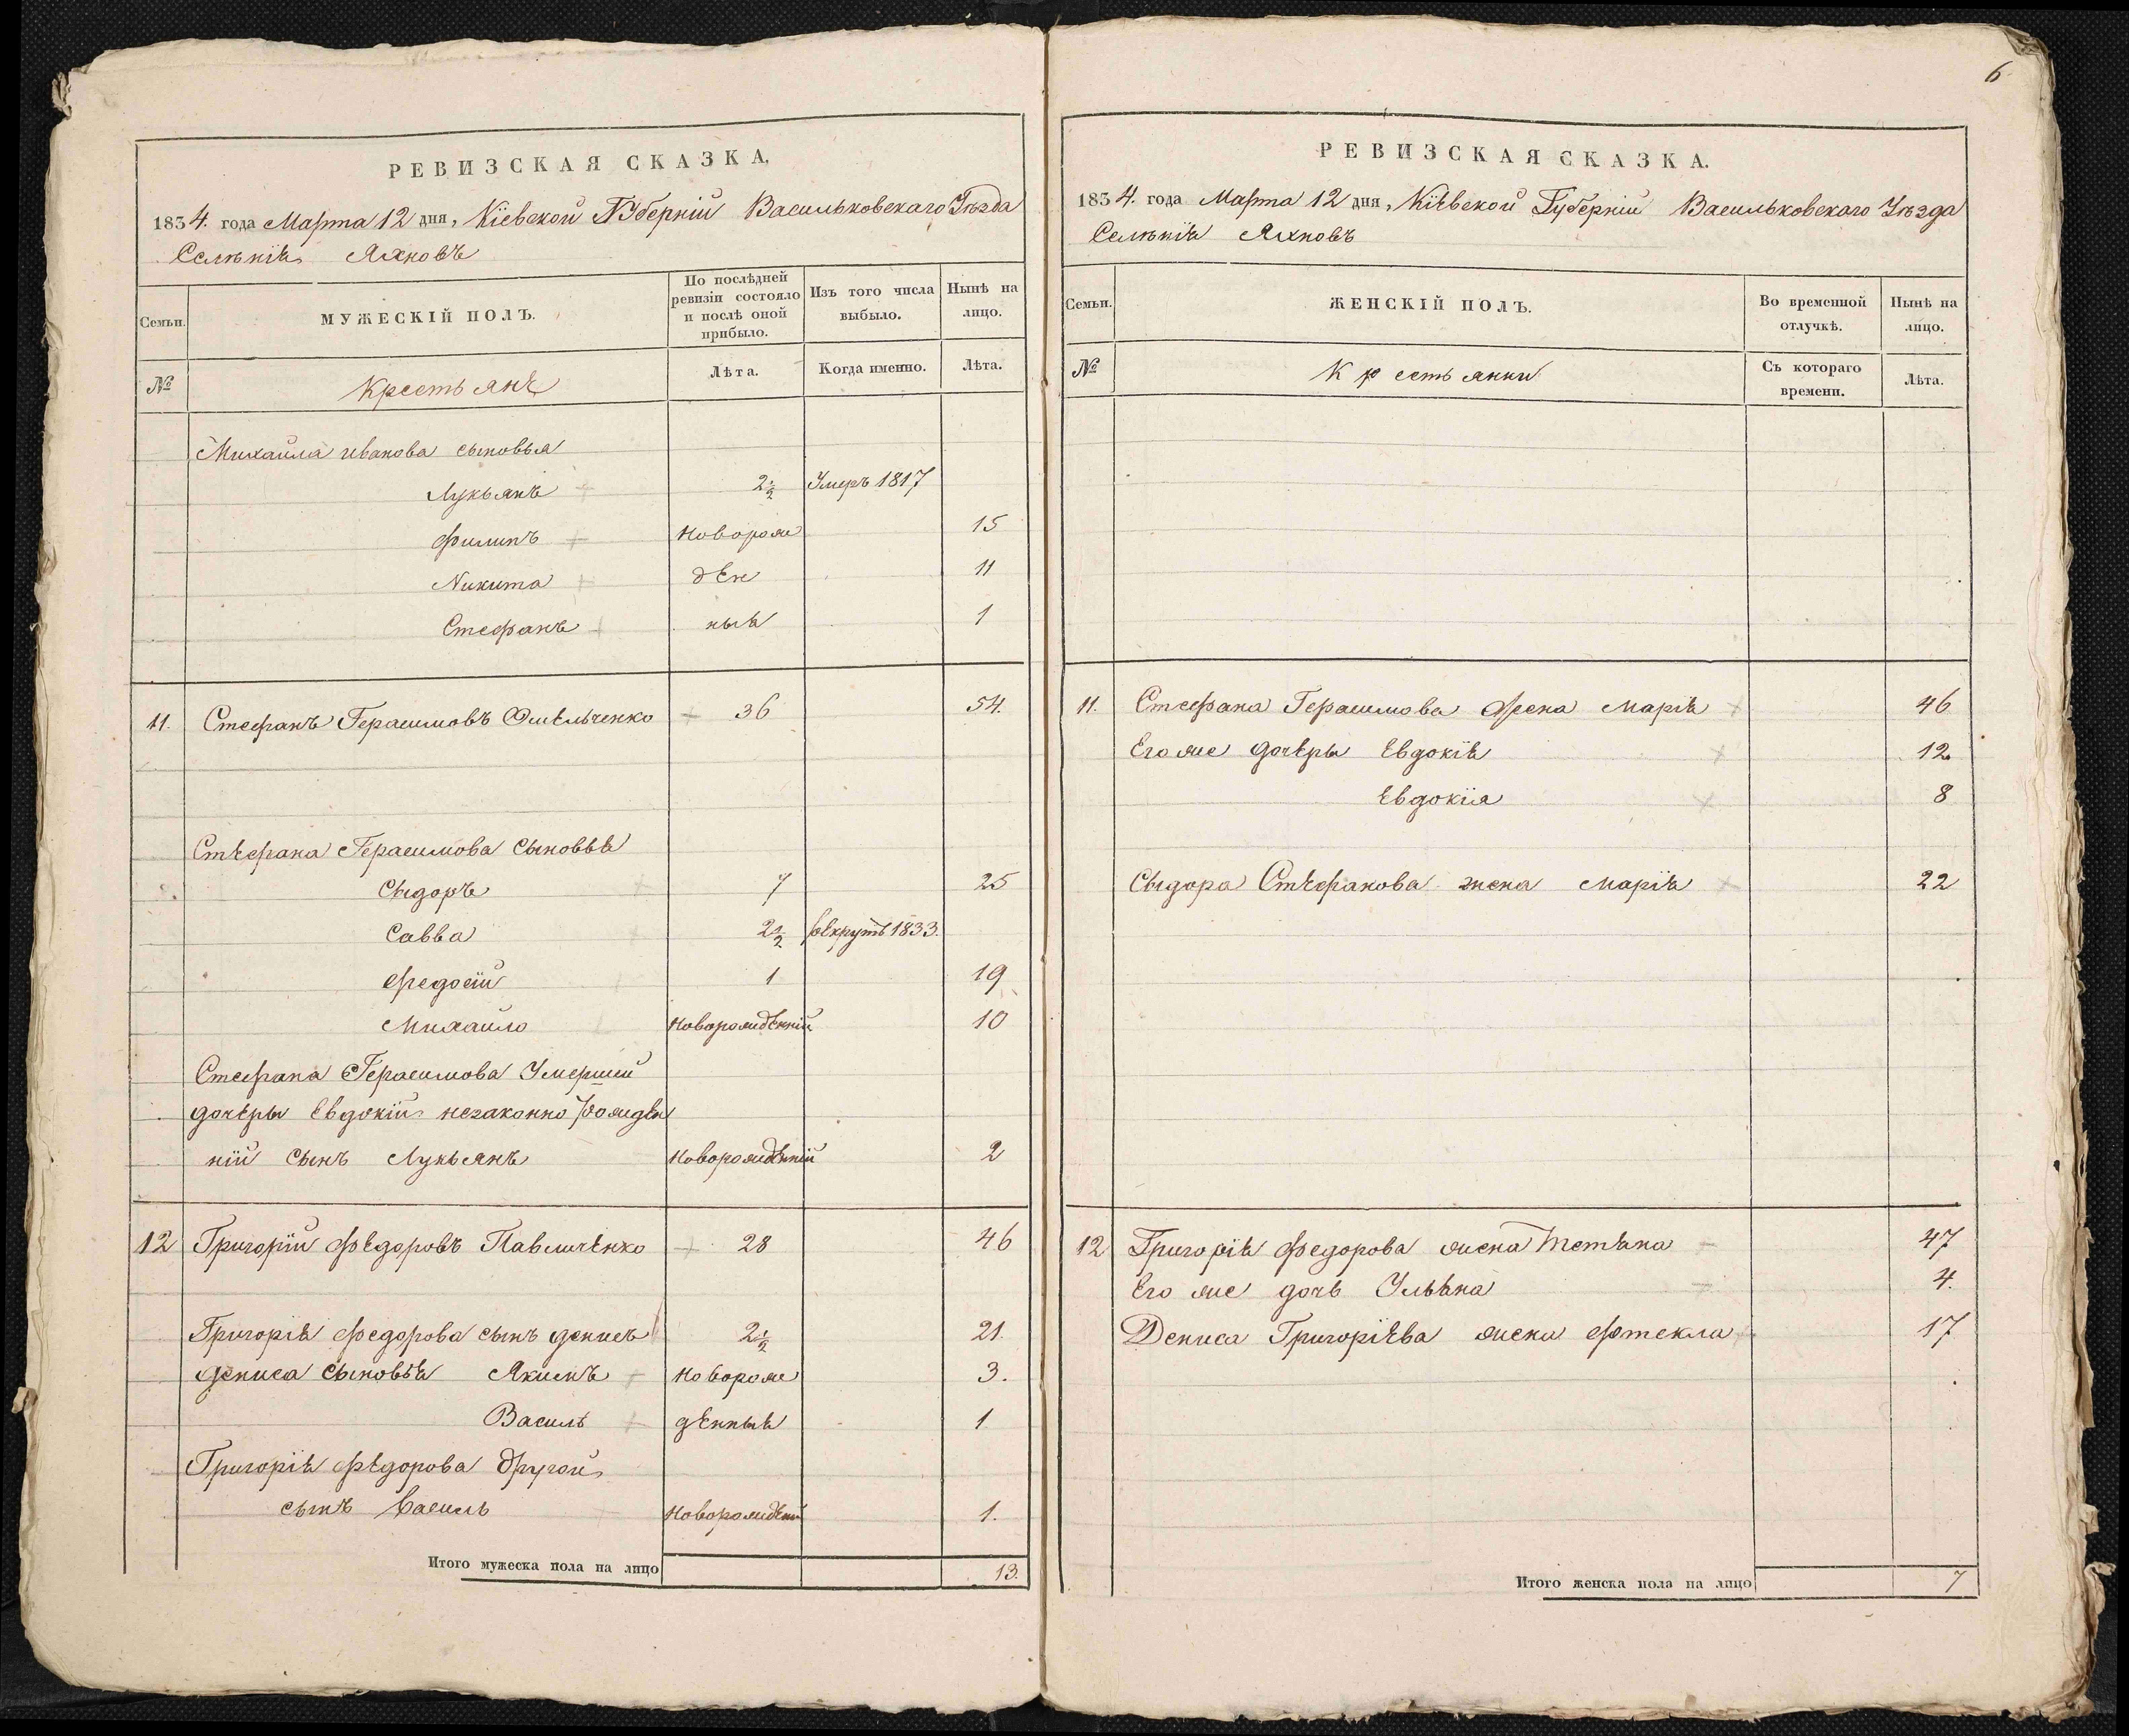 6
РЕВИЗСКАЯ СКАЗКА,
1834. года Марта 12 дня, Кіевской Губерніи Васильковскаго Уѣзда
Селѣнія Яхновъ
Семьи. МУЖЕСКІЙ ПОЛЪ. По послѣдней ревизіи состояло и послѣ оной прибыло. Изъ того числа выбыло. Нынѣ на лицо.
№ Крестьянѣ Лѣта. Когда именно. Лѣта.
Михайла иванова сыновья
Лукьянъ 2 1/2 Умеръ 1817
Филипъ Новорож 15
Никита ден 11
Стефанъ ныя 1
11. Стефанъ Герасимовъ Омельченко 36 54.
Стефана Герасимова Сыновья
Сыдоръ 7 25
Савва 2 1/2 рекрутъ 1833.
Федосій 1 19
Михайло Новорожденній 10
Стефана Герасимова Умершей
дочеры Евдокіи незаконно рожден
ній Сынъ Лукьянъ Новорожденній 2
12 Григорій Федоровъ Павличенко 28 46
Григорія Федорова сынъ денисъ 2 1/2 21.
дениса Сыновья Якимъ Новорож 3.
Василь денныя 1
Григорія Федорова другой
сынъ Василь Новорожденій 1.
Итого мужеска пола на лицо 13.
РЕВИЗСКАЯ СКАЗКА.
1834. года Марта 12 дня, Кіевской Губерніи Васильковскаго Уѣзда
Селѣнія Яхновъ
Семьи. ЖЕНСКІЙ ПОЛЪ. Во временной отлучкѣ. Нынѣ на лицо.
№ Крестьянки Съ котораго времени. Лѣта.
11. Стефана Герасимова жена Марія 46
Его же дочеры Евдокія 12
Евдокія 8
Сыдора Стефанова жена Марія 22
12 Григорія Федорова жена Тетяна 47
Его же дочь Ульяна 4.
Дениса Григоріева жена Фтекла 17
Итого женска пола на лицо 7